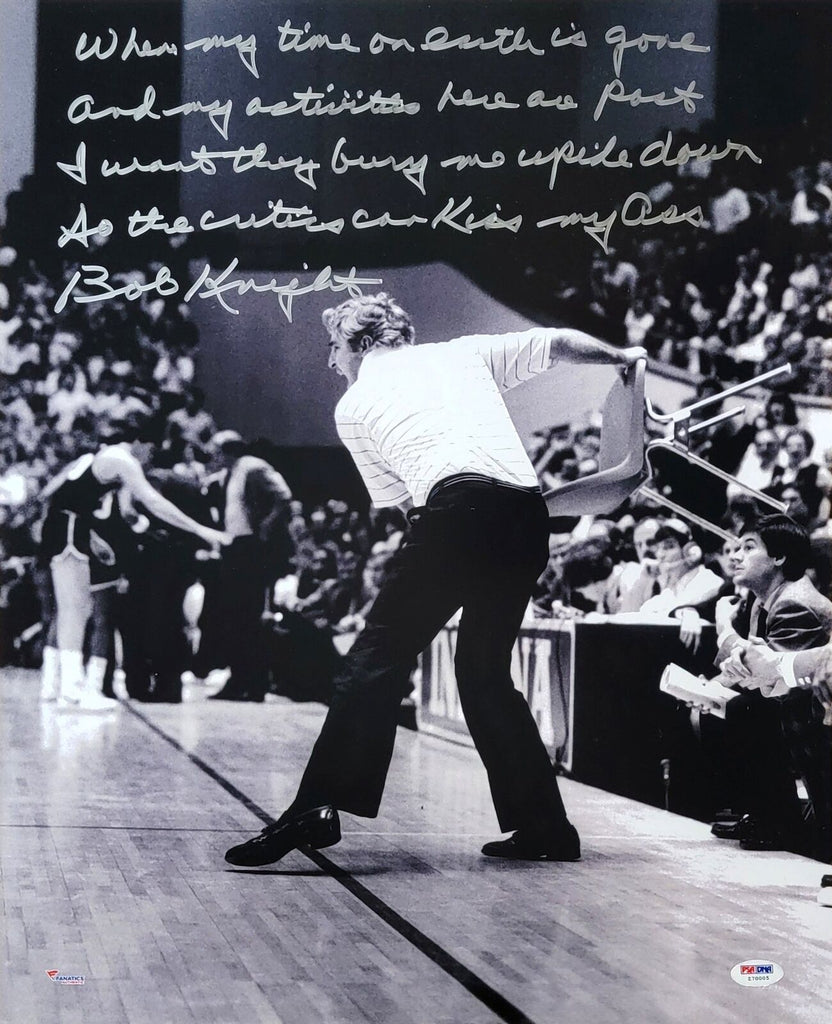 When my time on earth is gone
and my activities here are past
I want they bury me upside down
So the critics can Kiss my Ass
Bob Knight
FANATICS
AUTHENTIC
PSA DNA